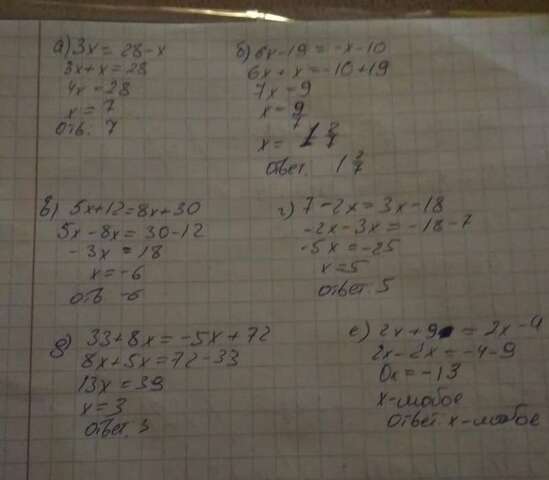 а) 3x = 28-x
3x+x=28
4x=28
x=7
отв. 7
б) 6x-19=-x-10
6x+x=-10+19
7x=9
x=9/7
x= 1 2/7
ответ. 1 2/7
в) 5x+12=8x+30
5x-8x=30-12
-3x=18
x=-6
отв -6
г) 7-2x=3x-18
-2x-3x=-18-7
-5x=-25
x=5
ответ. 5
д) 33+8x=-5x+72
8x+5x=72-33
13x=39
x=3
ответ. 3
е) 2x+9=2x-4
2x-2x=-4-9
0x=-13
x-любое
ответ x-любое